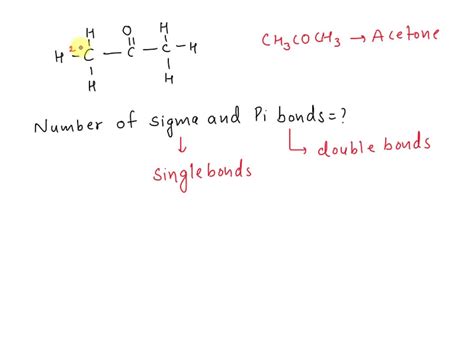 H O H
H - C - C - C - H
H H
CH3COCH3 → Acetone
Number of sigma and Pi bonds=?
↓ ↳ double bonds
singlebonds